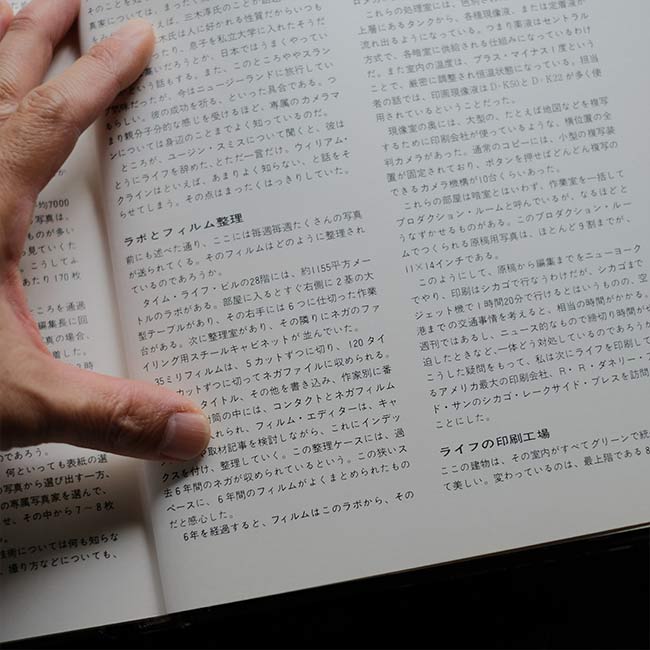 真家については、まったく
えば、三木淳氏のことが話
木氏は人に好かれる性質だからいつも
ったり、息子を私立大学に入れたそうだ
書いだろうとか、日本ではうまくやってい
という話もする。また、このところややスラン
だったが、今はニュージーランドに旅行してい
るらしい。彼の成功を祈る、といった具合である。つ
まり親分子分的な感じを受けるほど、専属のカメラマ
ンについては身辺のことまでよく知っているのだ。
ところが、ユージン・スミスについて聞くと、彼は
とうにライフを辞めた、とただ一言だけ。ウィリアム・
クラインはといえば、あまりよく知らない、と話をそ
らせてしまう。その点はまったくはっきりしていた。
ラボとフィルム整理
前にも述べた通り、ここには毎週毎週たくさんの写真
が送られてくる。そのフィルムはどのように整理され
ているのであろうか。
タイム・ライフ・ビルの28階には、約1155平方メー
トルのラボがある。部屋に入るとすぐ右側に2基の大
型テーブルがあり、その右手には6つに仕切った作業
台がある。次に整理室があり、その隣りにネガのファ
イリング用スチールキャビネットが並んでいた。
35ミリフィルムは、5カットずつに切り、120タイ
カットずつに切ってネガファイルに収められる。
タイトル、その他を書き込み、作家別に番
封筒の中には、コンタクトとネガフィルム
入れられ、フィルム・エディターは、キャ
や取材記事を検討しながら、これにインデッ
クスを付け、整理していく。この整理ケースには、過
去6年間のネガが収められているという。この狭いス
ペースに、6年間のフィルムがよくまとめられたもの
だと感心した。
6年を経過すると、フィルムはこのラボから、その
これらの処理室には、
上層にあるタンクから、各種現像液、または定着液が
流れ出るようになっている。つまり薬液はセントラル
方式で、各暗室に供給される仕組みになっているわけ
だ。また室内の温度は、プラス・マイナス1度という
ことで、厳密に調整され恒温状態になっている。担当
者の話では、印画現像液はD-K50とD-K22が多く使
用されているということだった。
現像室の奥には、大型の、たとえば地図などを複写
するために印刷会社が使っているような、横位置の全
判カメラがあった。通常のコピーには、小型の複写装
置が固定されており、ボタンを押せばどんどん複写の
できるカメラ機構が10台くらいあった。
これらの部屋は暗室とはいわず、作業室を一括して
プロダクション・ルームと呼んでいるが、なるほどと
うなずかせるものがある。このプロダクション・ルー
ムでつくられる原稿用写真は、ほとんど9割までが、
11×14インチである。
このようにして、原稿から編集までをニューヨーク
でやり、印刷はシカゴで行なうわけだが、シカゴまで
ジェット機で1時間20分で行けるとはいうものの、空
港までの交通事情を考えると、相当の時間がかかる。
週刊ではあるし、ニュース的なもので締切り時間がせ
迫したときなど、一体どう対処しているのであろうか
こうした疑問をもって、私は次にライフを印刷して
るアメリカ最大の印刷会社、R・R・ダネリー・
ド・サンのシカゴ・レークサイド・プレスを訪問
ことにした。
ライフの印刷工場
ここの建物は、その室内がすべてグリーンで統
て美しい。変わっているのは、最上階である8
均7000
写真は、
ものが多い
っ見ていくた
。こうしてふ
あたり170枚
ところを通過
編集長に回
写真の場合、
着した。
時
のであろう。
何といっても表紙の選
の写真から選び出す一方、
の専属写真家を選んで、
せ、その中から7～8枚
技術については何も知らな
、撮り方などについても、